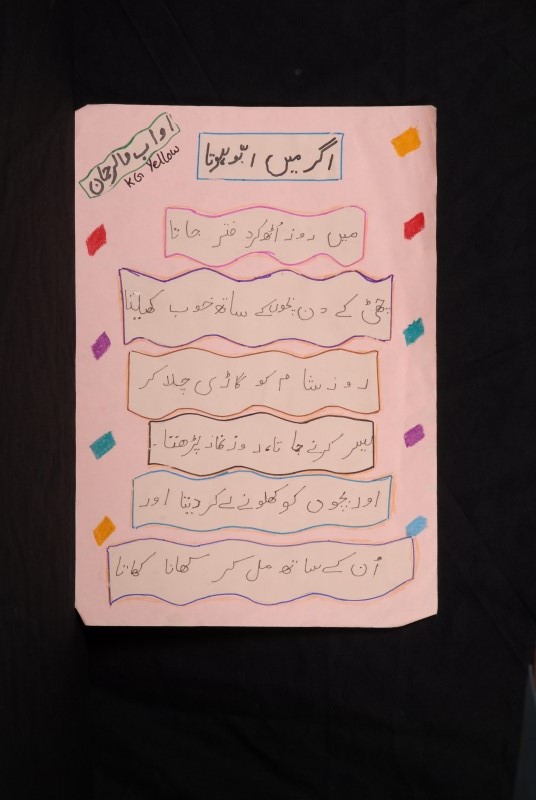 اواب فالرحمان
KG Yellow
اگر میں ابّو ہوتا
میں روز اُٹھ کر دفتر جاتا
چھٹی کے دن بچوں کے ساتھ خوب کھیلتا
روز شام کو گاڑی چلا کر
سیر کرنے جاتا، روز نماز پڑھتا۔
اور بچوں کو کھلونے لے کر دیتا اور
اُن کے ساتھ مل کر کھانا کھاتا